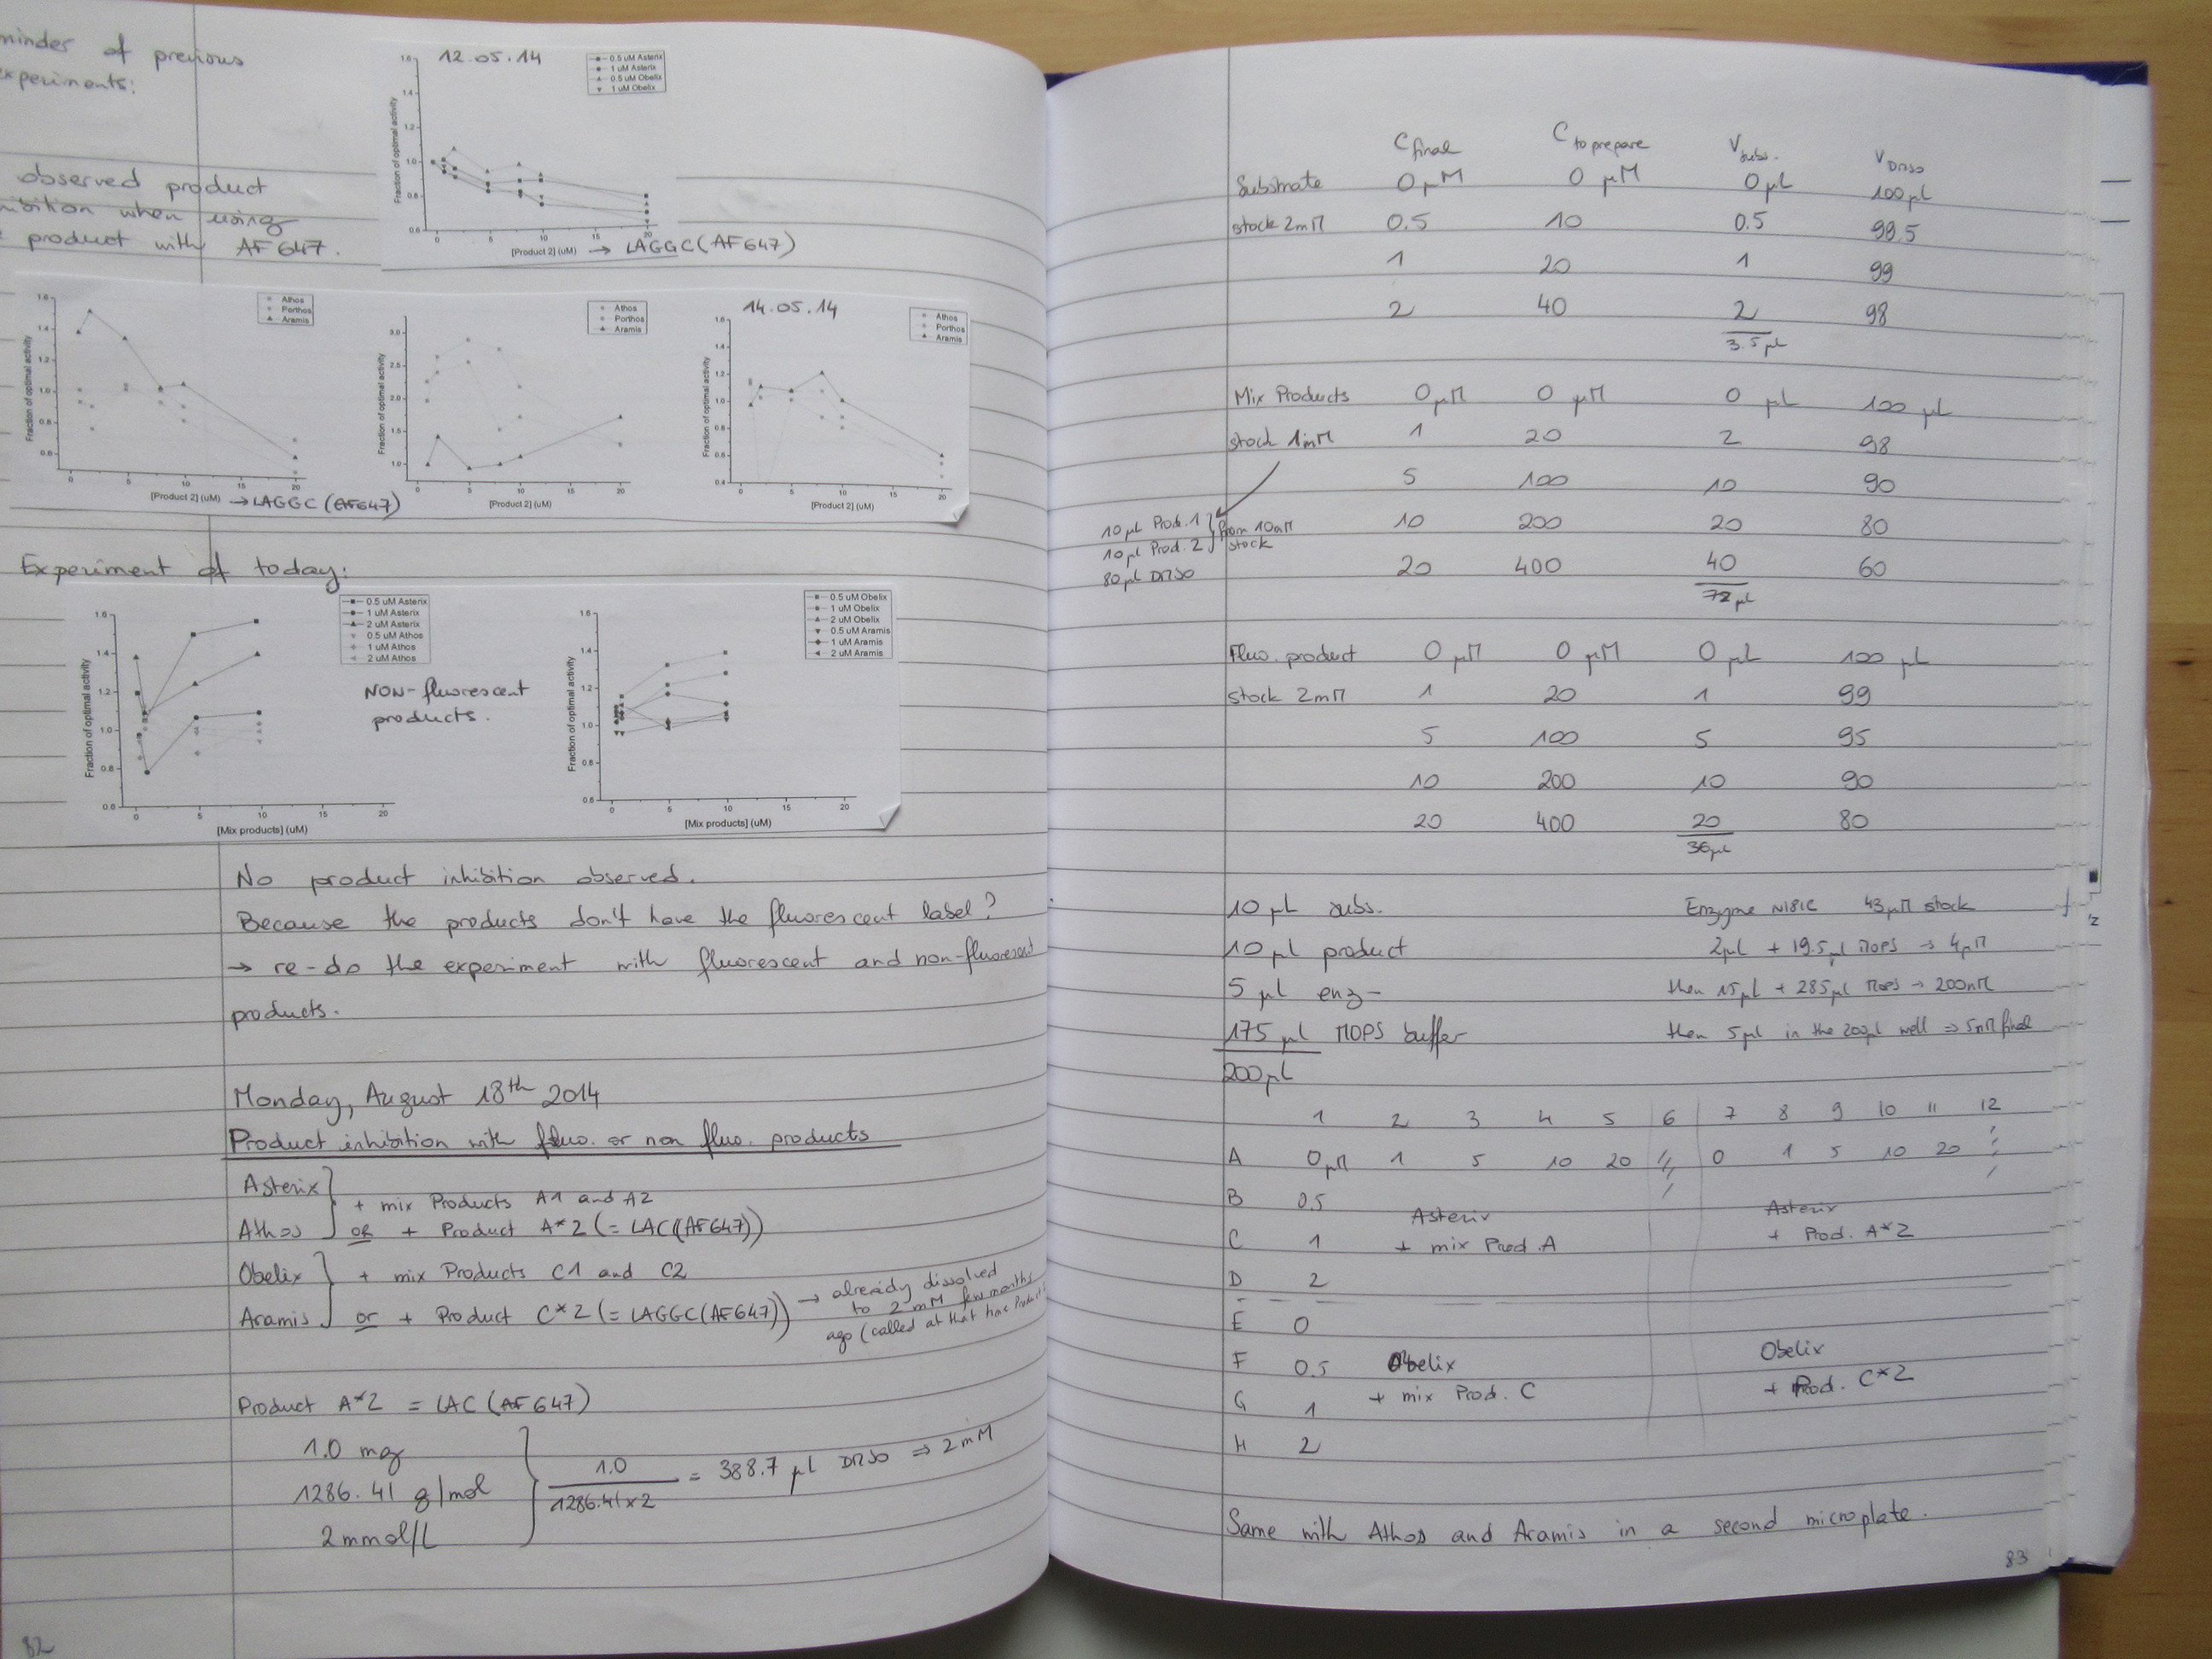 minder of previous
experiments:
12.05.14
0.5 uM Asterix
1 uM Asterix
0.5 uM Obelix
1 uM Obelix
Fraction of optimal activity
1.6
1.4
1.2
1.0
0.8
0.6
0 5 10 15 20
[Product 2] (uM) → LAGGC (AF647)
observed product
ibition when using
product with AF647.
Athos
Porthos
Aramis
Fraction of optimal activity
1.6
1.4
1.2
1.0
0.8
0.6
0 5 10 15 20
[Product 2] (uM) → LAGGC (AF647)
Athos
Porthos
Aramis
Fraction of optimal activity
3.0
2.5
2.0
1.5
1.0
0 5 10 15 20
[Product 2] (uM)
14.05.14
Athos
Porthos
Aramis
Fraction of optimal activity
1.6
1.4
1.2
1.0
0.8
0.6
0.4
0 5 10 15 20
[Product 2] (uM)
Experiment of today:
0.5 uM Asterix
1 uM Asterix
2 uM Asterix
0.5 uM Athos
1 uM Athos
2 uM Athos
Fraction of optimal activity
1.6
1.4
1.2
1.0
0.8
0.6
0 5 10 15 20
[Mix products] (uM)
NON-fluorescent
products.
0.5 uM Obelix
1 uM Obelix
2 uM Obelix
0.5 uM Aramis
1 uM Aramis
2 uM Aramis
Fraction of optimal activity
1.6
1.4
1.2
1.0
0.8
0.6
0 5 10 15 20
[Mix products] (uM)
No product inhibition observed.
Because the products don't have the fluorescent label?
→ re-do the experiment with fluorescent and non-fluorescent
products.
Monday, August 18th 2014
Product inhibition with fluo. or non fluo. products
Asterix
+ mix Products A1 and A2
Athos or + Product A*2 (= LAC(AF647))
Obelix + mix Products C1 and C2
Aramis or + Product C*2 (= LAGGC(AF647)) → already dissolved
to 2 mM few months
ago (called at that time Product
Product A*2 = LAC (AF647)
1.0 mg
1286.41 g/mol
2 mmol/L
1.0
1286.41x2
= 388.7 µl DMSO ⇒ 2 mM
82
C final C to prepare V subs. V DMSO
Substrate 0 µM 0 µM 0 µL 100 µL
stock 2mM 0.5 10 0.5 99.5
1 20 1 99
2 40 2 98
3.5 µL
Mix Products 0 µM 0 µM 0 µL 100 µL
stock 1mM 1 20 2 98
5 100 10 90
10 200 20 80
20 400 40 60
72 µL
10 µl Prod. 1
10 µl Prod. 2
from 10mM
stock
80 µl DMSO
Fluo. product 0 µM 0 µM 0 µL 100 µL
stock 2mM 1 20 1 99
5 100 5 95
10 200 10 90
20 400 20 80
36 µL
10 µL subs.
10 µL product
5 µL enz-
175 µL MOPS buffer
200 µL
Enzyme N181C 43 µM stock
2µL + 19.5 µL MOPS → 4µM
then 15µL + 285µL MOPS → 200nM
then 5µl in the 200µl well ⇒ 5nM final
1 2 3 4 5 6 7 8 9 10 11 12
A 0µM 1 5 10 20 0 1 5 10 20
B 0.5
Asterix Asterix
C 1 + mix Prod. A + Prod. A*2
D 2
E 0
F 0.5 Obelix Obelix
+ mix Prod. C + Prod. C*2
G 1
H 2
Same with Athos and Aramis in a second microplate.
83